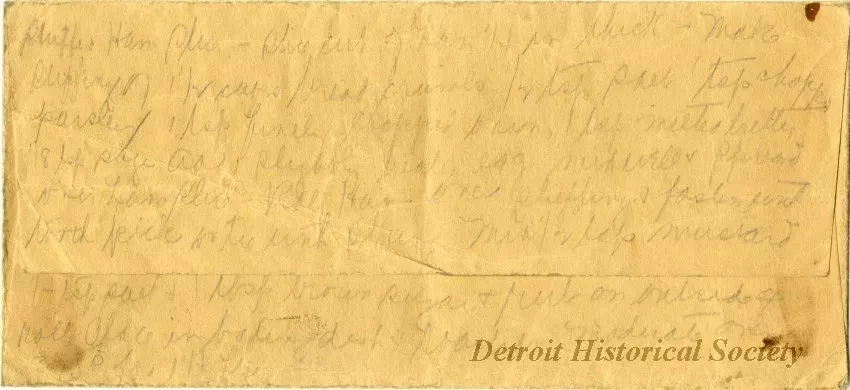 Stuffed Ham Slice - slice cut of ham 1/4 in thick - Make
stuffing of 1 1/2 cups bread crumbs 1/2 tsp salt 1 tsp chopped
parsley 1 tsp finely chopped onion, 1 tsp melted butter
1/8 tsp sage add slightly beaten egg mix well & spread
over ham slice - Roll Ham over stuffing & fasten with
tooth pick or tie with string Mix 1/2 tsp mustard
tsp salt & 1 tbsp brown sugar & rub on outside of
roll Place in baking dish moderate oven
Detroit Historical Society